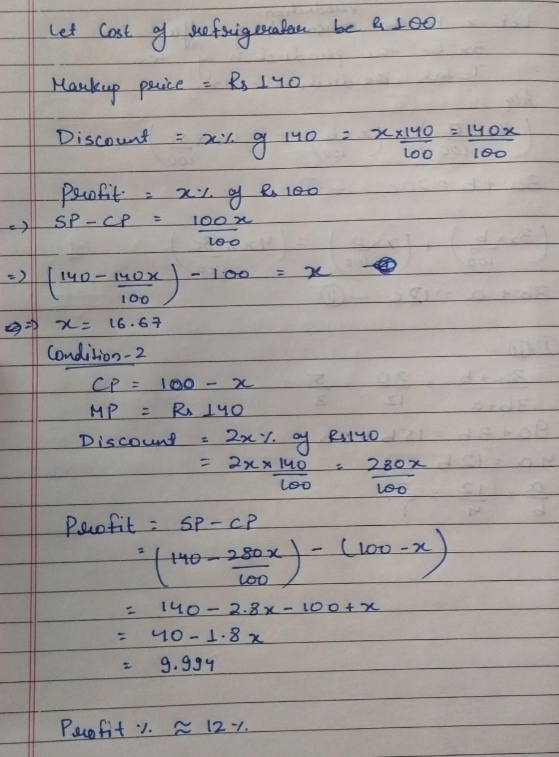 Let Cost of refrigerator be ₹ 100
Markup price = Rs 140
Discount = x% of 140 = x×140/100 = 140x/100
Profit = x% of Rs 100
=) SP-CP = 100x/100
=) (140 - 140x/100) - 100 = x
=) x = 16.67
Condition-2
CP = 100 - x
MP = Rs 140
Discount = 2x% of Rs 140
= 2x×140/100 = 280x/100
Profit = SP-CP
= (140 - 280x/100) - (100-x)
= 140 - 2.8x - 100 + x
= 40 - 1.8x
= 9.994
Profit % ≈ 12%